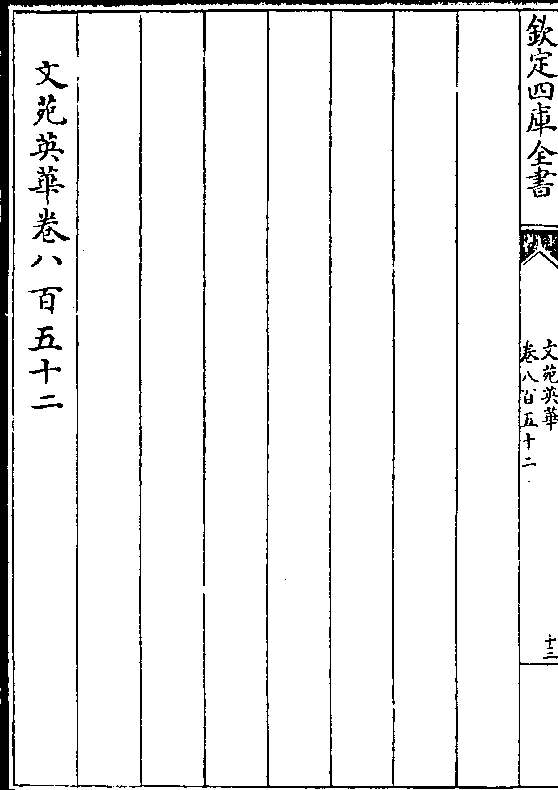 欽定四庫全書
文苑英華
卷八百五十二
十三
文苑英華卷八百五十二